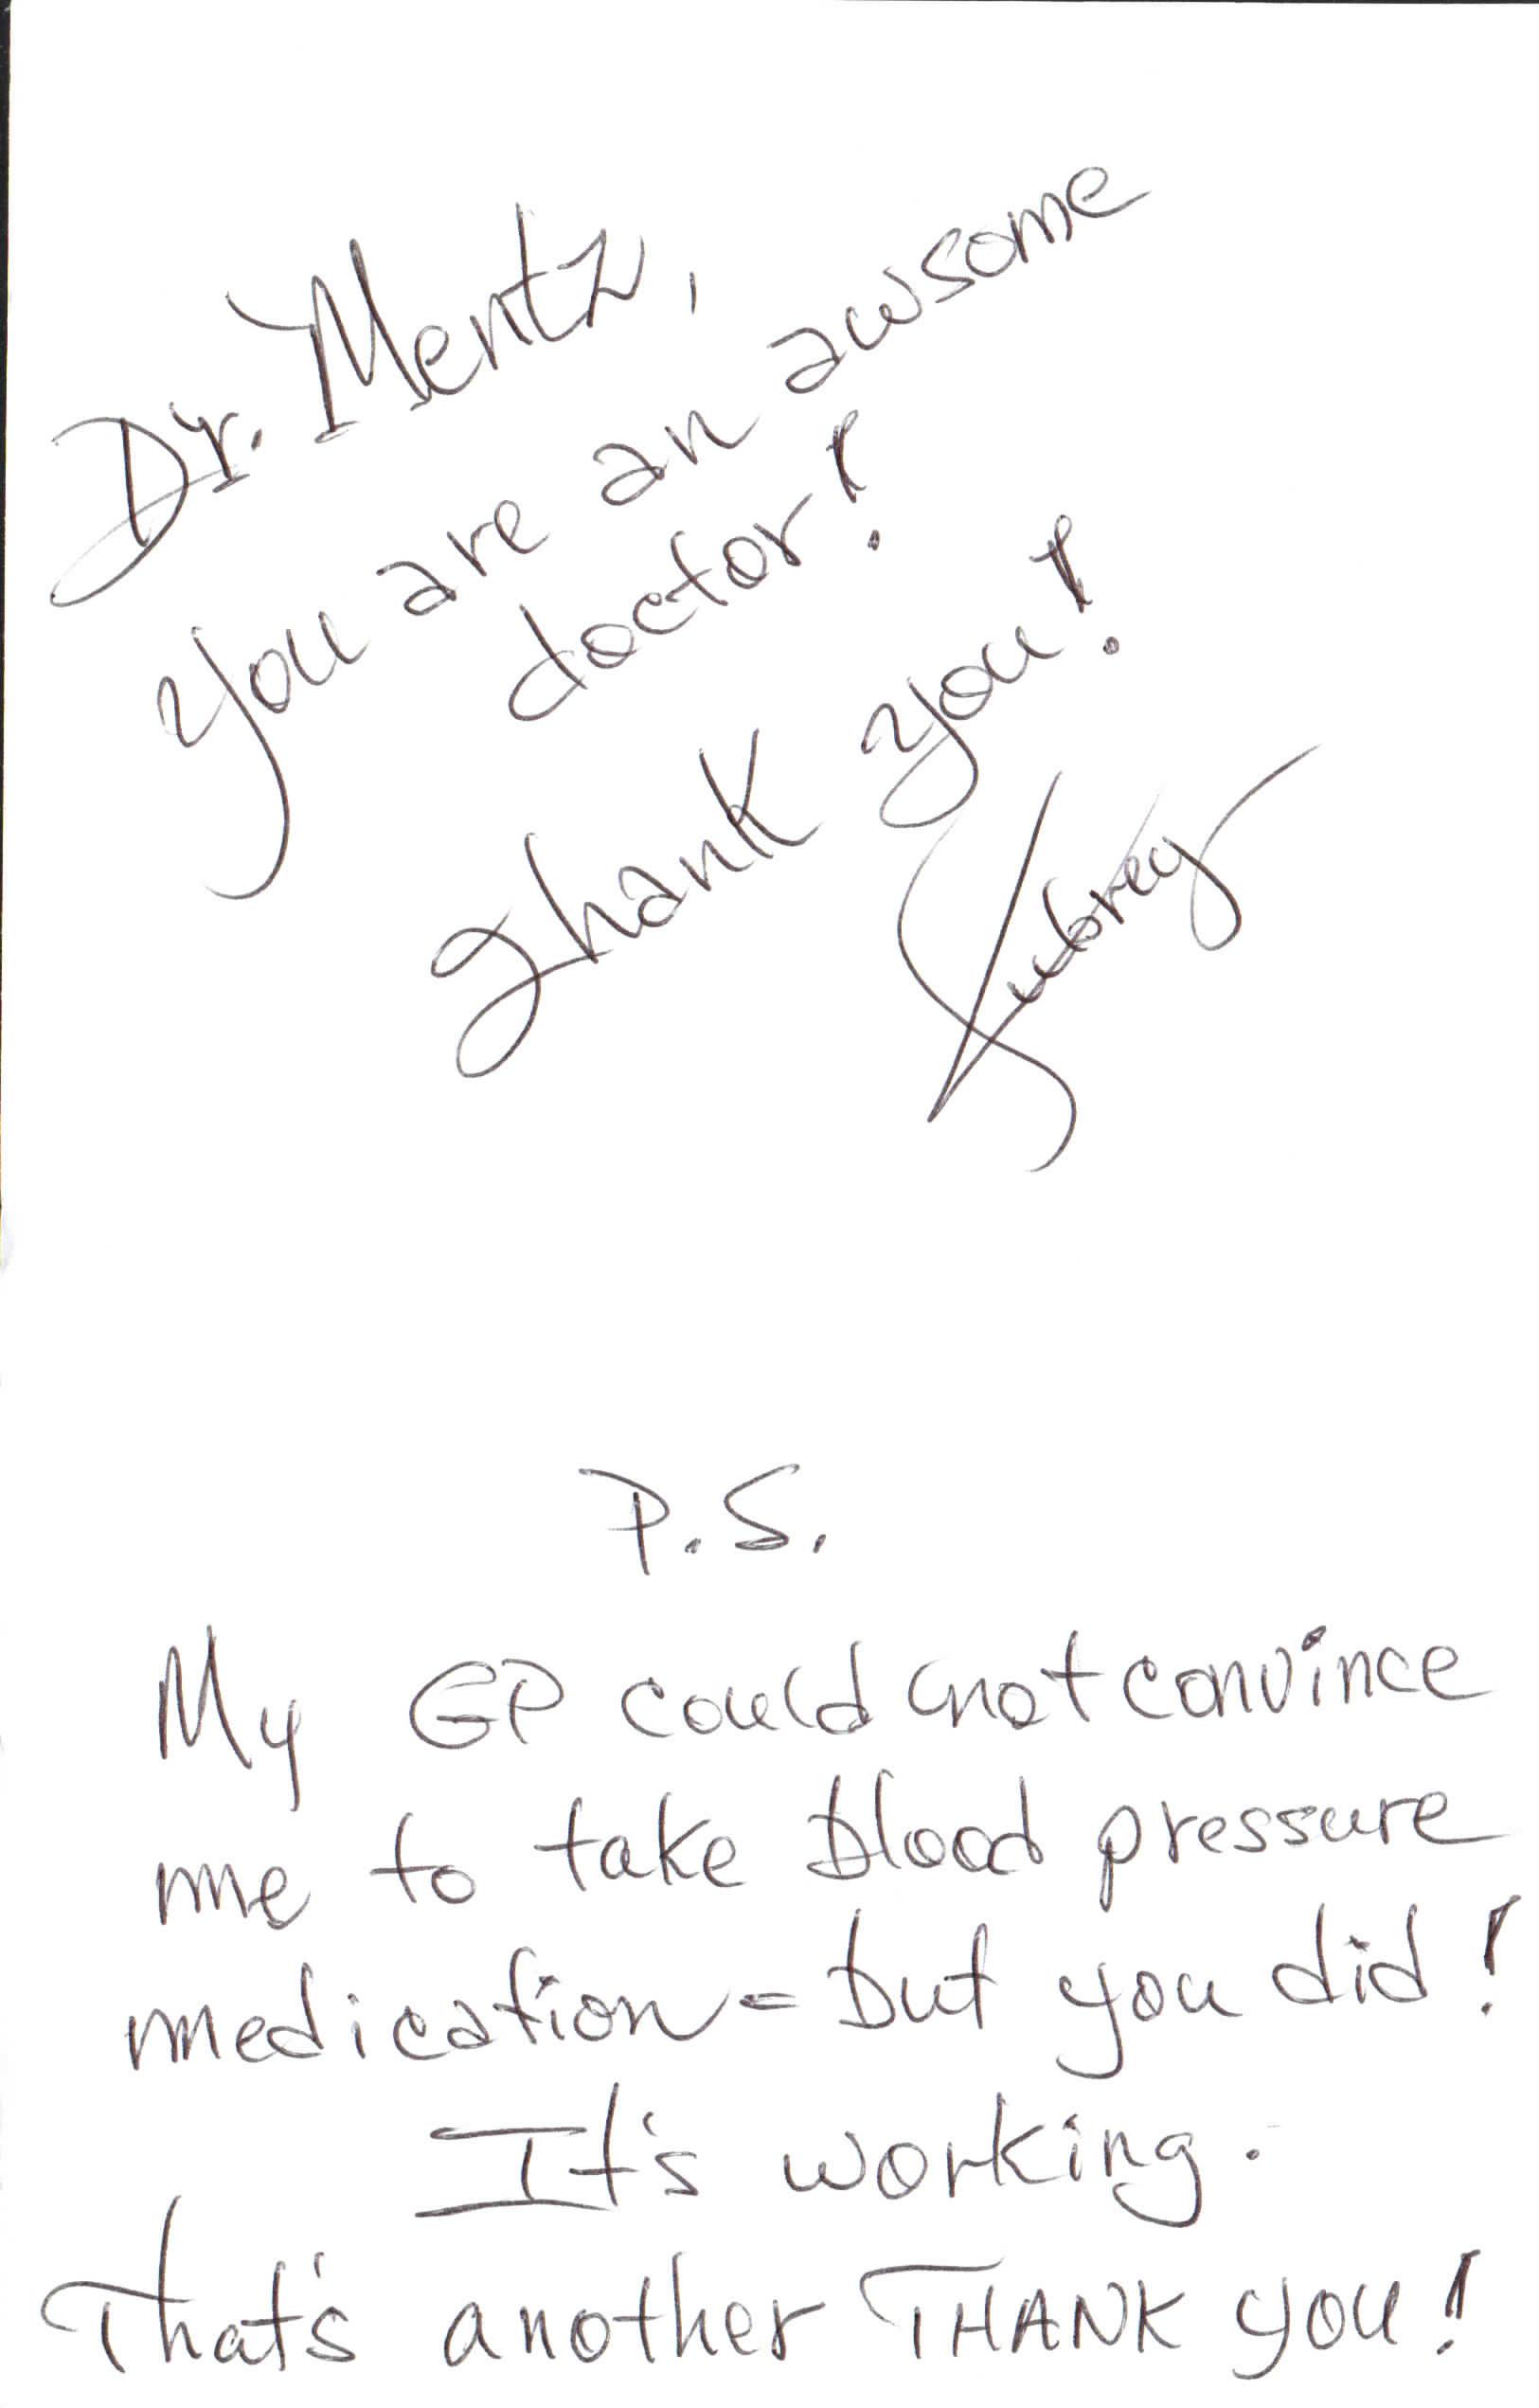 Dr. Mentz,
You are an awsome
doctor!
Thank you!
Aubrey
P.S.
My GP could not convince
me to take blood pressure
medication - but you did!
It's working.
That's another THANK YOU!